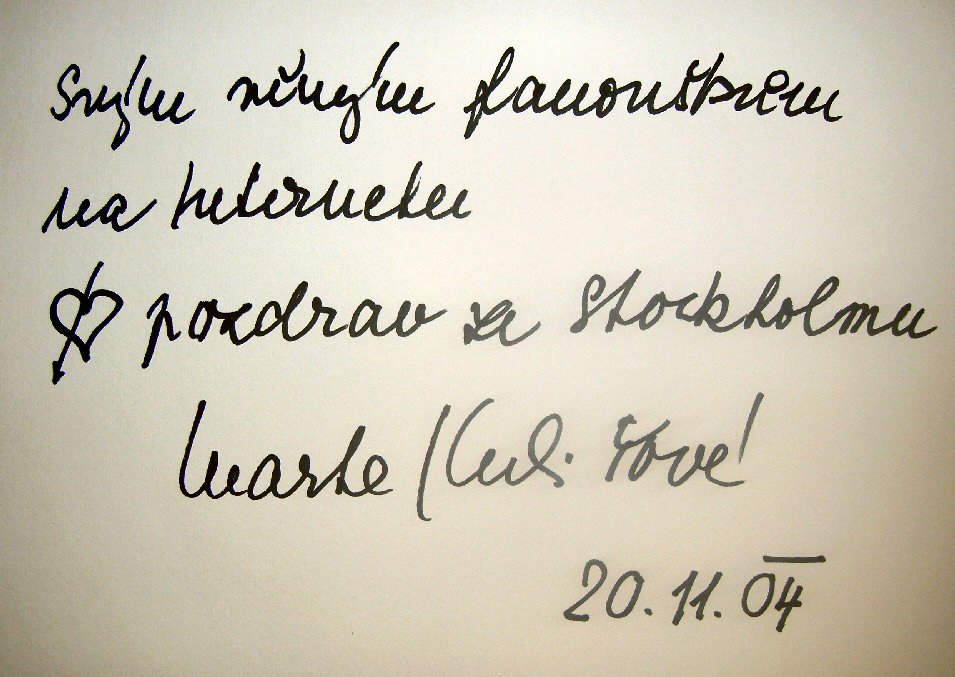 Svým věrným fanouškům
na Internetu
pozdrav ze Stockholmu
Marta
20.11.04